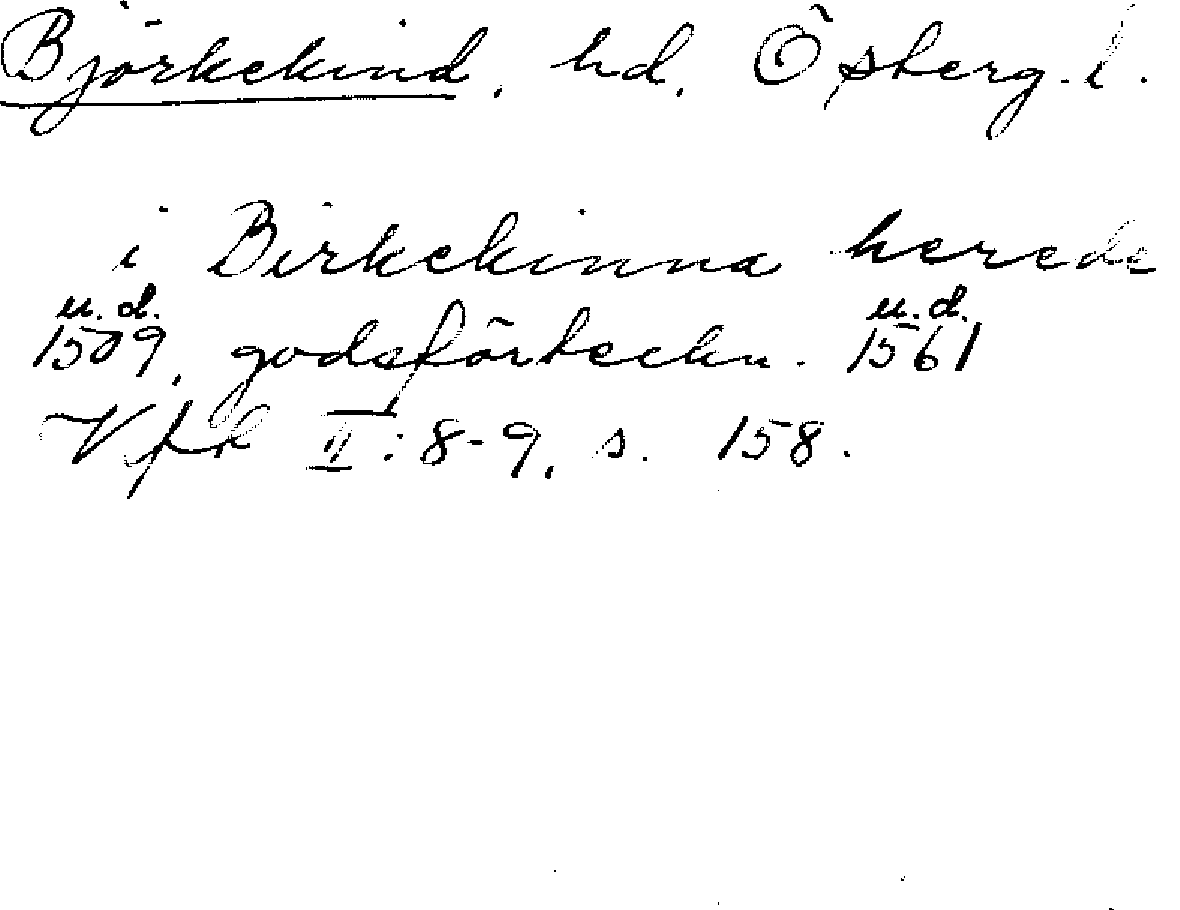 Björkekind, hd, Österg. l.
i Birkekinna herede
u.d. u.d.
1509, godsförteckn. 1561
Vfr II: 8-9, s. 158.